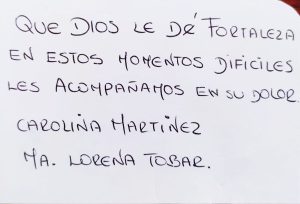 QUE DIOS LE DÉ FORTALEZA
EN ESTOS MOMENTOS DIFICILES
LES ACOMPAÑAMOS EN SU DOLOR.
CAROLINA MARTINEZ
MA. LORENA TOBAR.